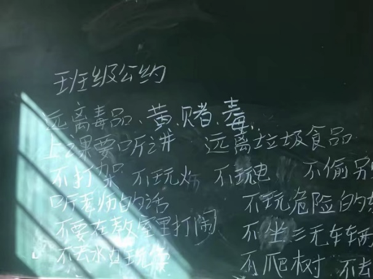 班级公约
远离毒品、黄、赌、毒
上课要听讲 远离垃圾食品
不打架 不玩火 不玩电 不偷别
听老师的话 不玩危险的
不要在教室里打闹 不坐三无车辆
不去水 不爬树 不去